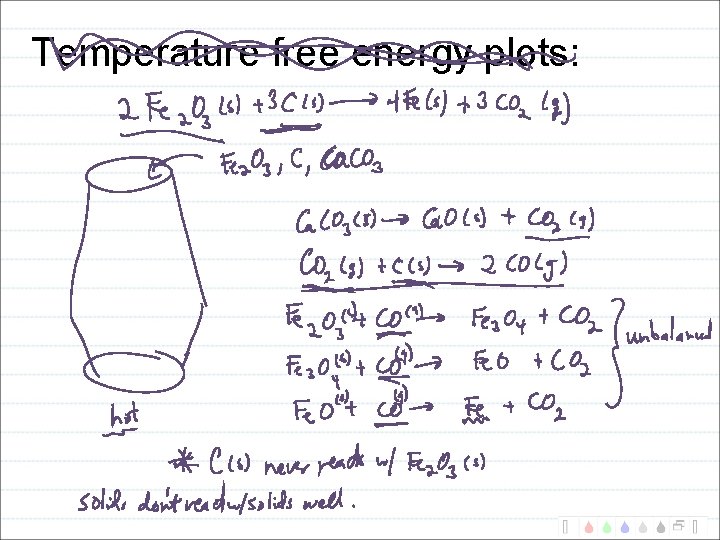 Temperature free energy plots:
2 Fe₂O₃ (s) + 3 C(s) → 4 Fe(s) + 3 CO₂ (g)
Fe₂O₃, C, CaCO₃
CaCO₃(s) → CaO(s) + CO₂ (g)
CO₂ (g) + C(s) → 2 CO(g)
Fe₂O₃(s) + CO(g) → Fe₃O₄ + CO₂
unbalanced
Fe₃O₄(s) + CO(g) → FeO + CO₂
FeO(s) + CO(g) → Fe + CO₂
hot
* C(s) never reacts w/ Fe₂O₃ (s)
solids don't react w/ solids well.